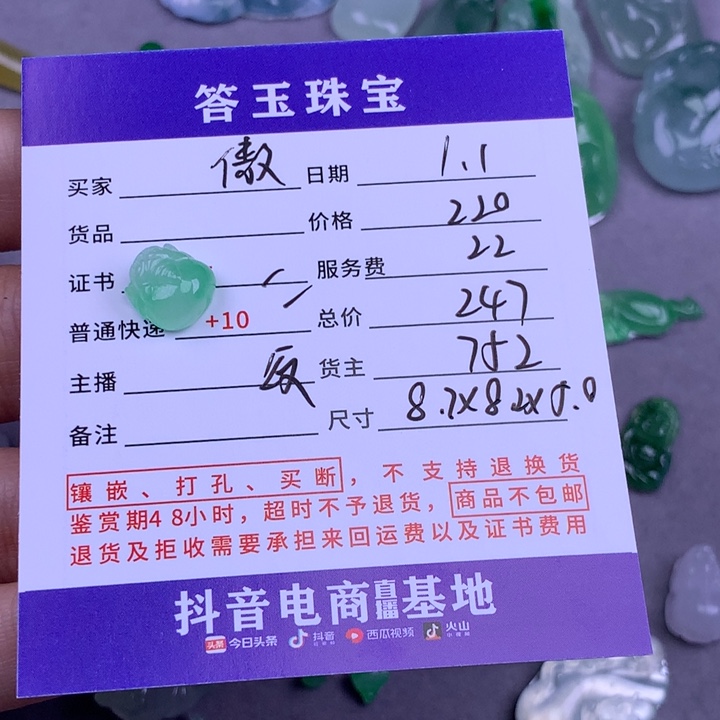 答玉珠宝
买家 傲 日期 1.1
货品 价格 220
证书 服务费 22
普通快递 +10 总价 247
主播 货主 752
备注 尺寸 8.7x8.2x5.0
镶嵌、打孔、买断，不支持退换货
鉴赏期48小时，超时不予退货，商品不包邮
退货及拒收需要承担来回运费以及证书费用
抖音电商直播基地
头条 今日头条 抖音 西瓜视频 火山